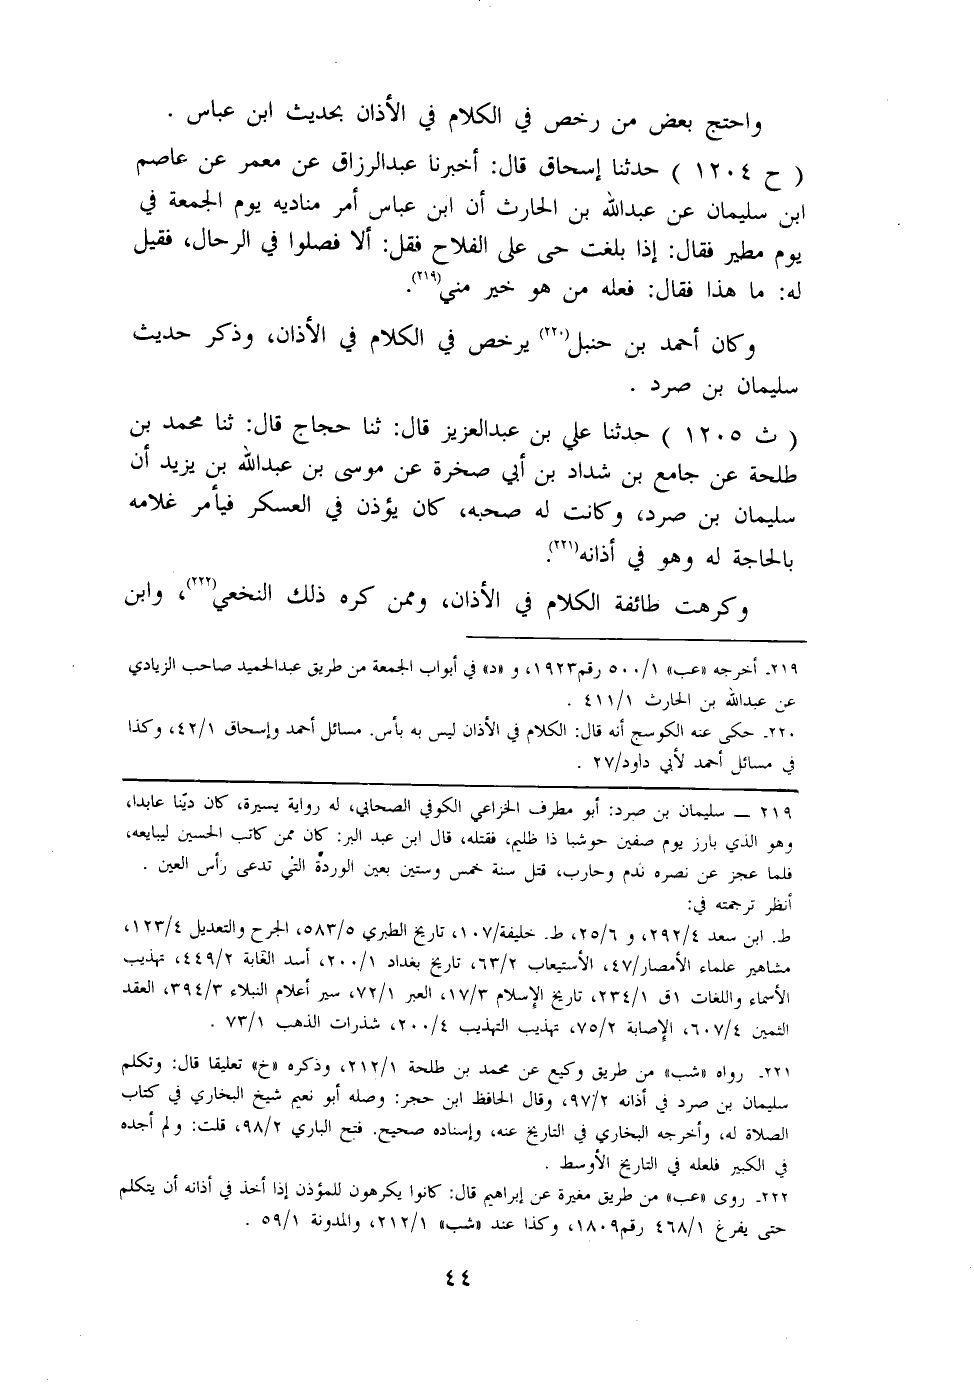 واحتج بعض من رخص في الكلام في الأذان بحديث ابن عباس .
( ح ١٢٠٤ ) حدثنا إسحاق قال: أخبرنا عبدالرزاق عن معمر عن عاصم
ابن سليمان عن عبدالله بن الحارث أن ابن عباس أمر مناديه يوم الجمعة في
يوم مطير فقال: إذا بلغت حى على الفلاح فقل: ألا فصلوا في الرحال، فقيل
له: ما هذا فقال: فعله من هو خير مني(٢١٩).
وكان أحمد بن حنبل(٢٢٠) يرخص في الكلام في الأذان، وذكر حديث
سليمان بن صرد .
( ث ١٢٠٥ ) حدثنا علي بن عبدالعزيز قال: ثنا حجاج قال: ثنا محمد بن
طلحة عن جامع بن شداد بن أبي صخرة عن موسى بن عبدالله بن يزيد أن
سليمان بن صرد، وكانت له صحبه، كان يؤذن في العسكر فيأمر غلامه
بالحاجة له وهو في أذانه(٢٢١).
وكرهت طائفة الكلام في الأذان، وممن كره ذلك النخعي(٢٢٢)، وابن
٢١٩ـ أخرجه «عب» ٥٠٠/١ رقم١٩٢٣، و «د» في أبواب الجمعة من طريق عبدالحميد صاحب الزيادي
عن عبدالله بن الحارث ٤١١/١ .
٢٢٠ـ حكى عنه الكوسج أنه قال: الكلام في الأذان ليس به بأس. مسائل أحمد وإسحاق ٤٢/١، وكذا
في مسائل أحمد لأبي داود/٢٧ .
٢١٩ ــ سليمان بن صرد: أبو مطرف الخزاعي الكوفي الصحابي، له رواية يسيرة، كان ديّنا عابدا،
وهو الذي بارز يوم صفين حوشبا ذا ظليم، فقتله، قال ابن عبد البر: كان ممن كاتب الحسين ليبايعه،
فلما عجز عن نصره ندم وحارب، قتل سنة خمس وستين بعين الوردة التي تدعى رأس العين .
أنظر ترجمته في:
ط. ابن سعد ٢٩٢/٤، و ٢٥/٦، ط. خليفة/١٠٧، تاريخ الطبري ٥٨٣/٥، الجرح والتعديل ١٢٣/٤،
مشاهير علماء الأمصار/٤٧، الأستيعاب ٦٣/٢، تاريخ بغداد ٢٠٠/١، أسد الغابة ٤٤٩/٢، تهذيب
الأسماء واللغات ١ق ٢٣٤/١، تاريخ الإسلام ١٧/٣، العبر ٧٢/١، سير أعلام النبلاء ٣٩٤/٣، العقد
الثمين ٦٠٧/٤، الإصابة ٧٥/٢، تهذيب التهذيب ٢٠٠/٤، شذرات الذهب ٧٣/١ .
٢٢١ـ رواه «شب» من طريق وكيع عن محمد بن طلحة ٢١٢/١، وذكره «خ» تعليقا قال: وتكلم
سليمان بن صرد في أذانه ٩٧/٢، وقال الحافظ ابن حجر: وصله أبو نعيم شيخ البخاري في كتاب
الصلاة له، وأخرجه البخاري في التاريخ عنه، وإسناده صحيح. فتح الباري ٩٨/٢، قلت: ولم أجده
في الكبير فلعله في التاريخ الأوسط .
٢٢٢ـ روى «عب» من طريق مغيرة عن إبراهيم قال: كانوا يكرهون للمؤذن إذا أخذ في أذانه أن يتكلم
حتى يفرغ ٤٦٨/١ رقم١٨٠٩، وكذا عند «شب» ٢١٢/١، والمدونة ٥٩/١ .
٤٤